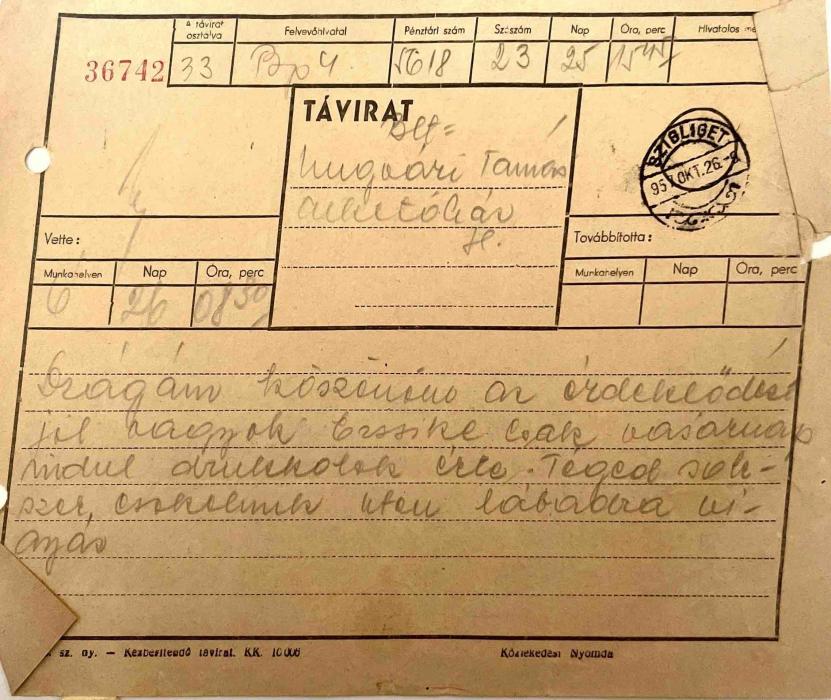 A távirat osztálya Felvevőhivatal Pénztári szám Szószám Nap Óra, perc Hivatalos
36742 33 Bp 4 5618 23 25 1545
TÁVIRAT
Ungvári Tamás
Alkotóház
SZIGLIGET
957 OKT. 26.
Vette:
Továbbította:
Munkahelyen Nap Óra, perc
6 26 0830
Munkahelyen Nap Óra, perc
Drágám köszönöm az érdeklődést
jól vagyok Erzsike csak vasárnap
indul drukkolok érte. Téged sok-
szor csókolunk uton lábadra vi-
gyázz
sz. ny. — Kézbesítendő távirat. KK. 10006
Közlekedési Nyomda